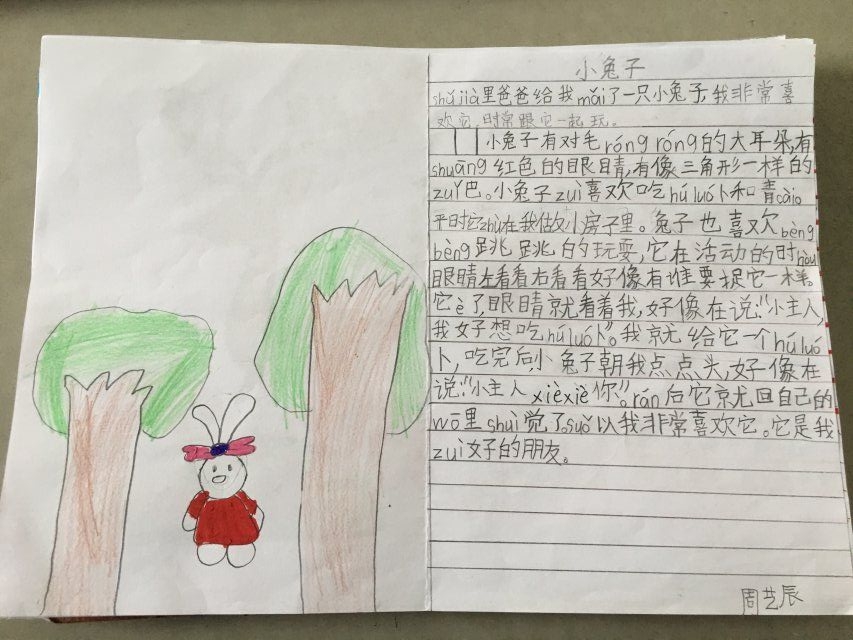 小兔子
shǔ jià里爸爸给我mǎi了一只小兔子,我非常喜
欢它,时常跟它一起玩。
小兔子有对毛róng róng的大耳朵,有
shuāng红色的眼睛,有像三角形一样的
zuǐ巴。小兔子zuì喜欢吃hú luó卜和青cài。
平时它zhù在我做的小房子里。兔子也喜欢bèng
bèng跳跳的玩耍,它在活动的时hòu
眼睛左看看右看看好像有谁要捉它一样。
它è了,眼睛就看着我,好像在说:“小主人,
我好想吃hú luó卜”。我就给它一个hú luó
卜,吃完后小兔子朝我点点头,好像在
说:“小主人xiè xiè你”。rán后它就回自己的
wō里shuì觉了。suǒ以我非常喜欢它。它是我
zuì好的朋友。
周艺辰